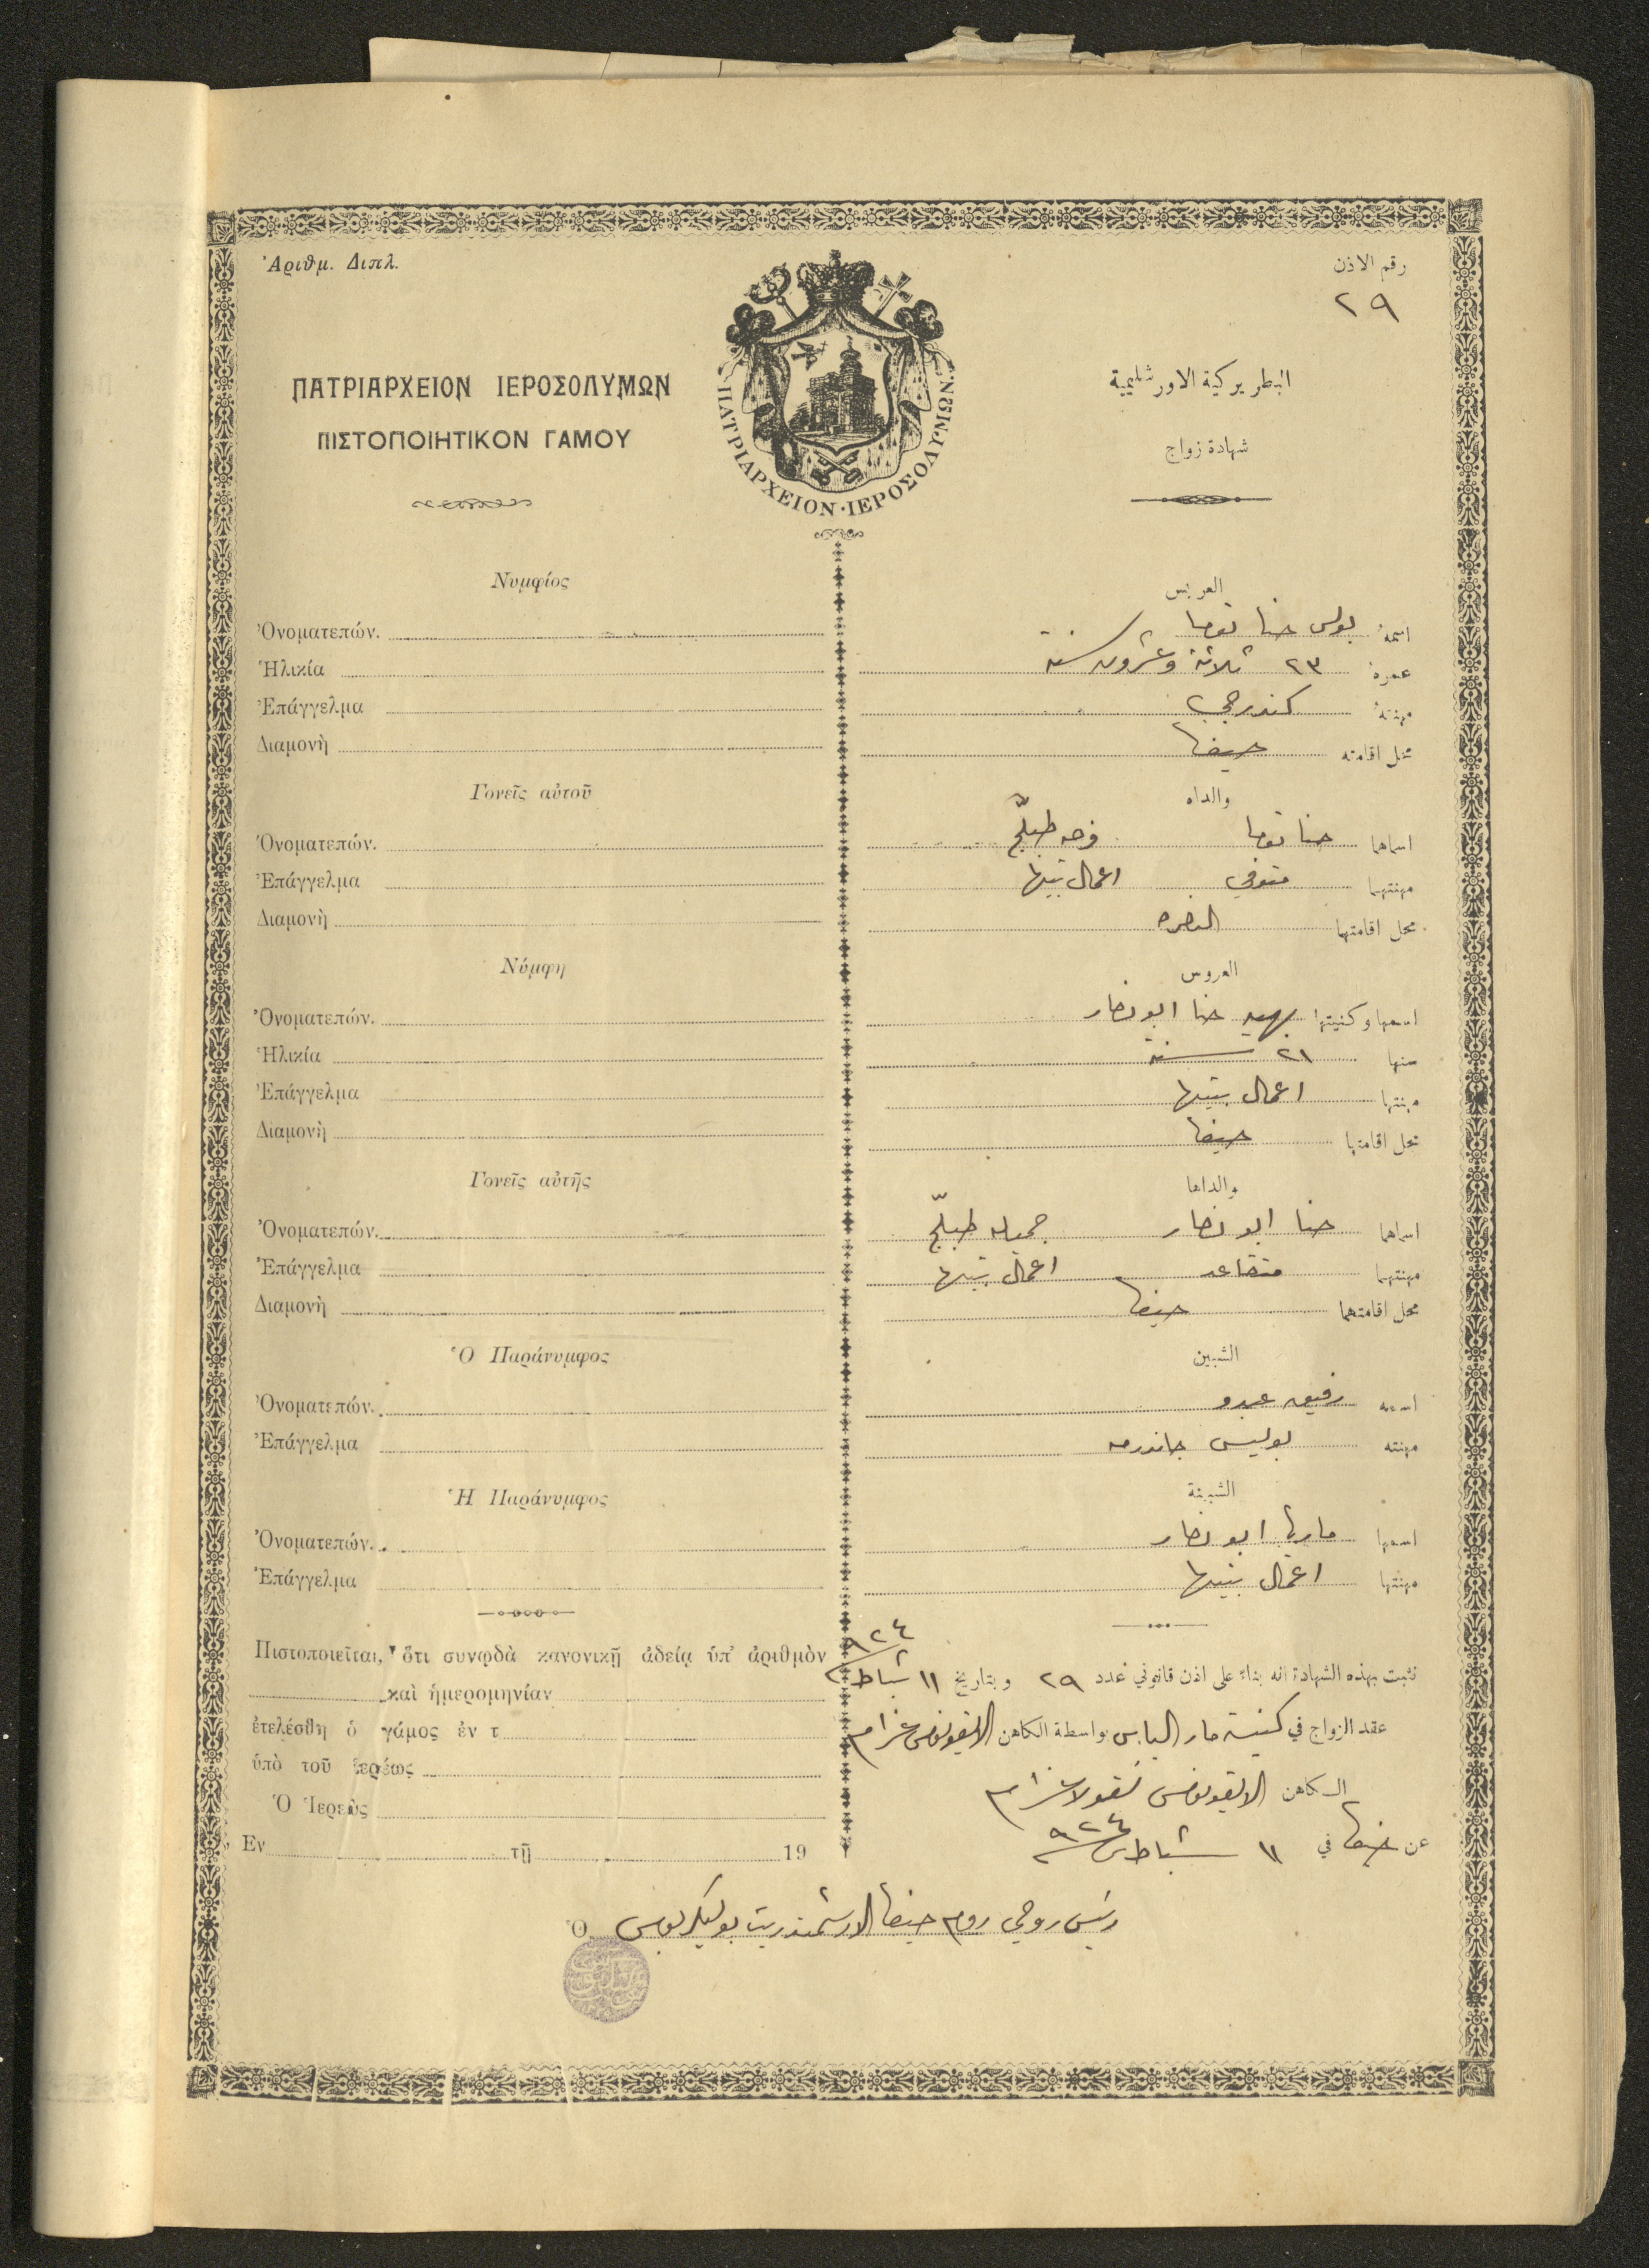 Ἀριθμ. Διπλ.
رقم الاذن
٢٩
ΠΑΤΡΙΑΡΧΕΙΟΝ ΙΕΡΟΣΟΛΥΜΩΝ
البطريركية الاورشليمية
ΠΙΣΤΟΠΟΙΗΤΙΚΟΝ ΓΑΜΟΥ
شهادة زواج
ΠΑΤΡΙΑΡΧΕΙΟΝ·ΙΕΡΟΣΟΛΥΜΩΝ
Νυμφίος
العريس
Ὀνοματεπών.
اسمهُ بولس حنا توما
Ἡλικία
عمرهُ ٢٣ ثلاثة وعشرون سنة
Ἐπάγγελμα
مهنتهُ كندرجي
Διαμονὴ
محل اقامته حيفا
Γονεῖς αὐτοῦ
والداه
Ὀνοματεπών.
اسماهما حنا توما فرحه طبلج
Ἐπάγγελμα
مهنتهما متوفي اعمال بيتها
Διαμονὴ
محل اقامتهما الناصره
Νύμφη
العروس
Ὀνοματεπών.
اسمها وكنيتها بهيه حنا ابو نصار
Ἡλικία
سنها ٢١ سنة
Ἐπάγγελμα
مهنتها اعمال بيتها
Διαμονὴ
محل اقامتها حيفا
Γονεῖς αὐτῆς
والداها
Ὀνοματεπών.
اسماهما حنا ابو نصار جميله طبلج
Ἐπάγγελμα
مهنتهما متقاعد اعمال بيتها
Διαμονὴ
محل اقامتهما حيفا
Ὁ Παράνυμφος
الشبين
Ὀνοματεπών.
اسمه رفيق عبدو
Ἐπάγγελμα
مهنته بوليس جاندرمه
Ἡ Παράνυμφος
الشبينة
Ὀνοματεπών.
اسمها ماريا ابو نصار
Ἐπάγγελμα
مهنتها اعمال بيتها
Πιστοποιεῖται, ὅτι συνῳδὰ κανονικῇ ἀδείᾳ ὑπ' ἀριθμὸν
καὶ ἡμερομηνίαν
نثبت بهذه الشهادة انه بناءً على اذن قانوني عدد ٢٩ وبتاريخ ١١ شباط ٩٢٤
ἐτελέσθη ὁ γάμος ἐν τ
عقد الزواج في كنيسة مار الياس بواسطة الكاهن الايقونومس عزام
ὑπὸ τοῦ ἱερέως
الكاهن الايقونومس نقولا عزام
Ὁ Ἱερεὺς
Ἐν τῇ 19
عن حيفا في ١١ شباط ٩٢٤
Ὁ رئيس روحي روم حيفا الارشمندريت بوليكربوس